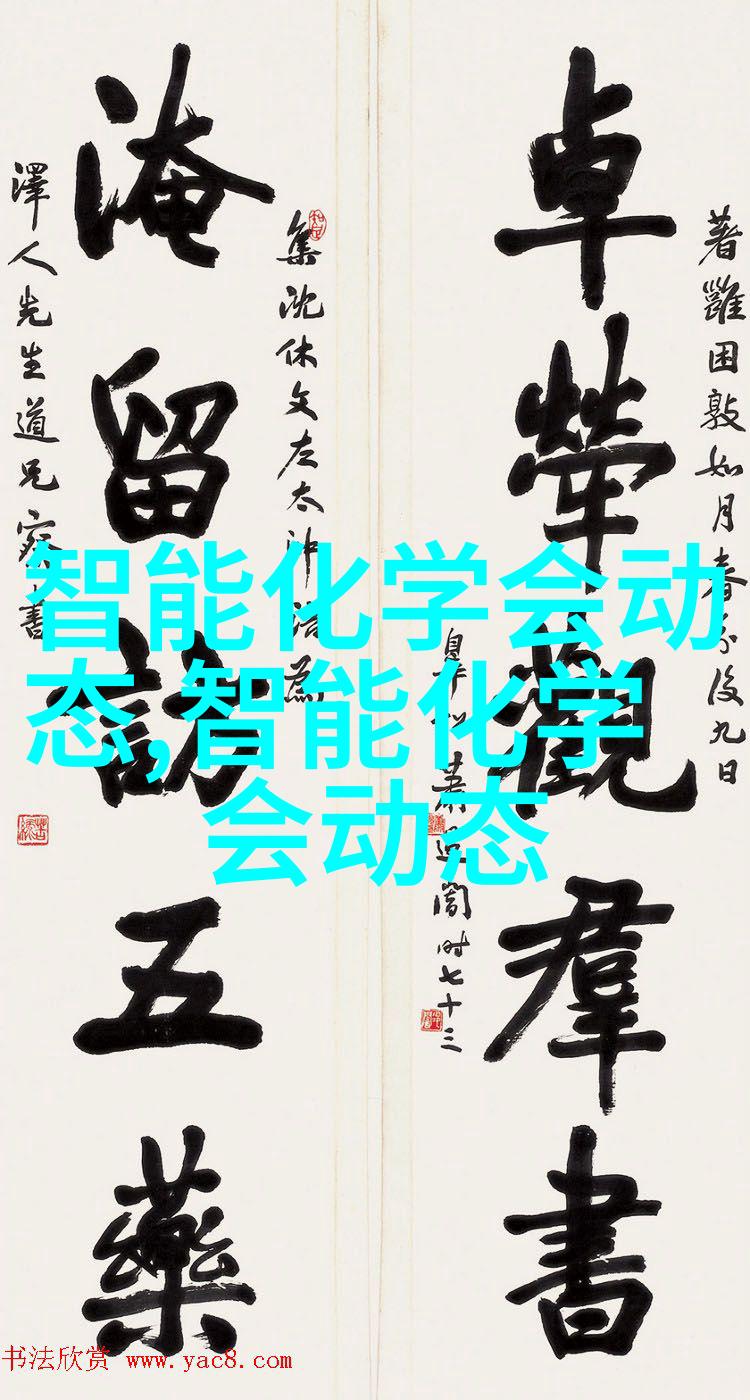 著雝困敦如月春分後九日
卓犖觀羣書
蕭退闇時七十三
集沈休文左太沖詩爲
淹留訪五藥
澤人先生道兄察書
智能化学会动
态,智能化学
会动态
书法欣赏 www.yac8.com